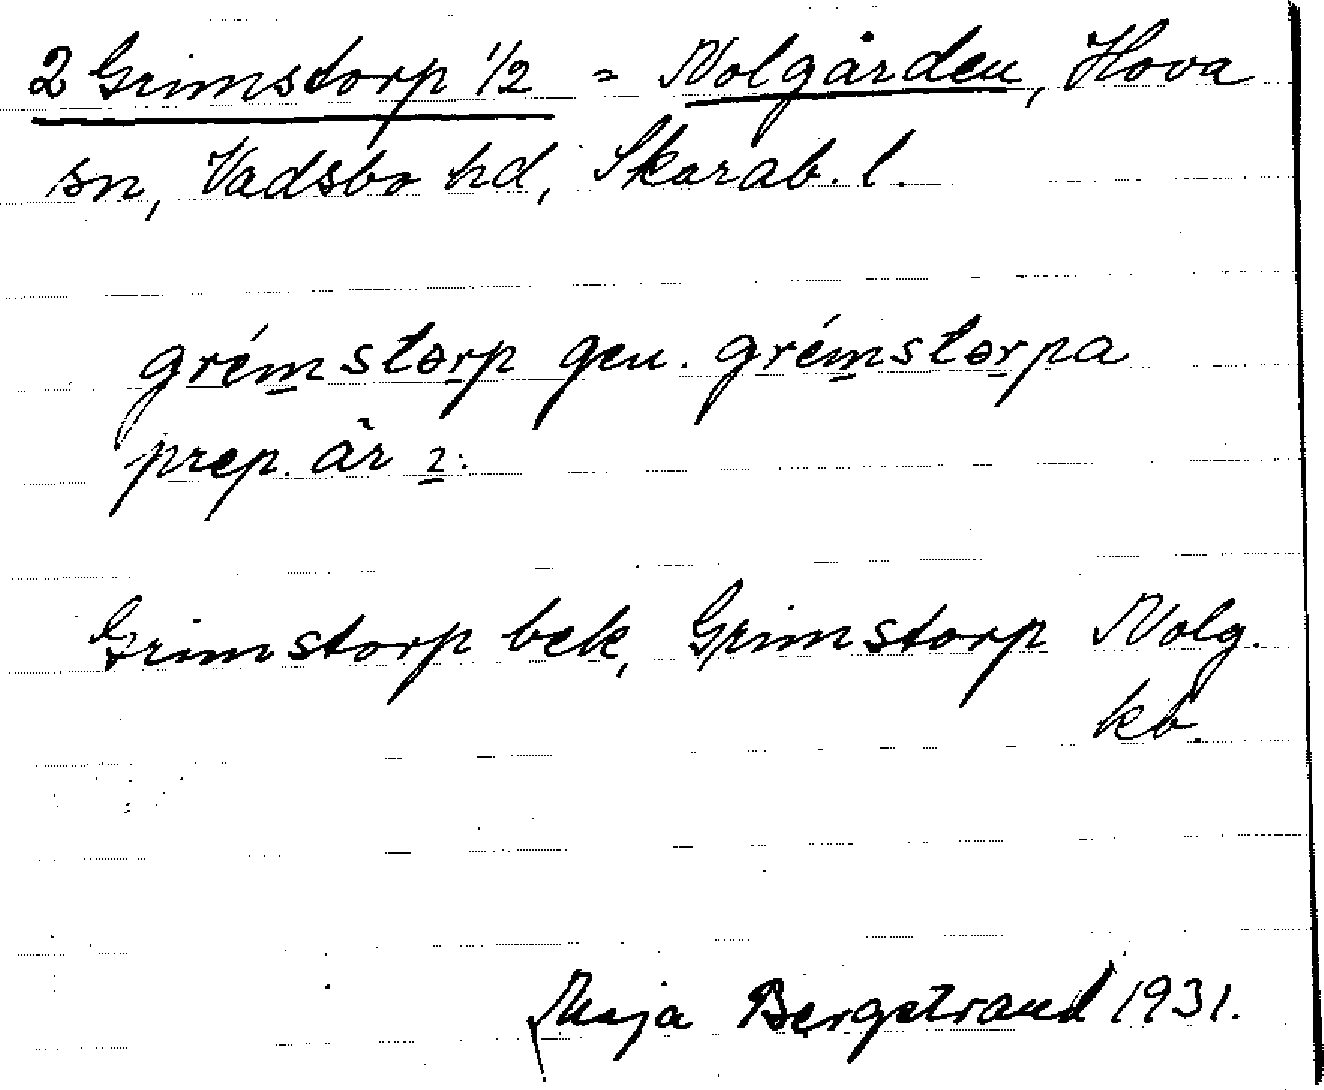 2 Grimstorp 1/2 = Nolgården, Hova
sn, Vadsbo hd, Skarab. l.
grémstərp gen. grémstərpa
prep. är ı.
Grimstorp bek, Grimstorp Nolg.
kb.
Maja Bergstrand 1931.